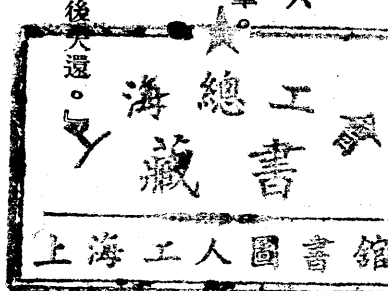 後天還。
海總工
藏書
上海工人圖書館